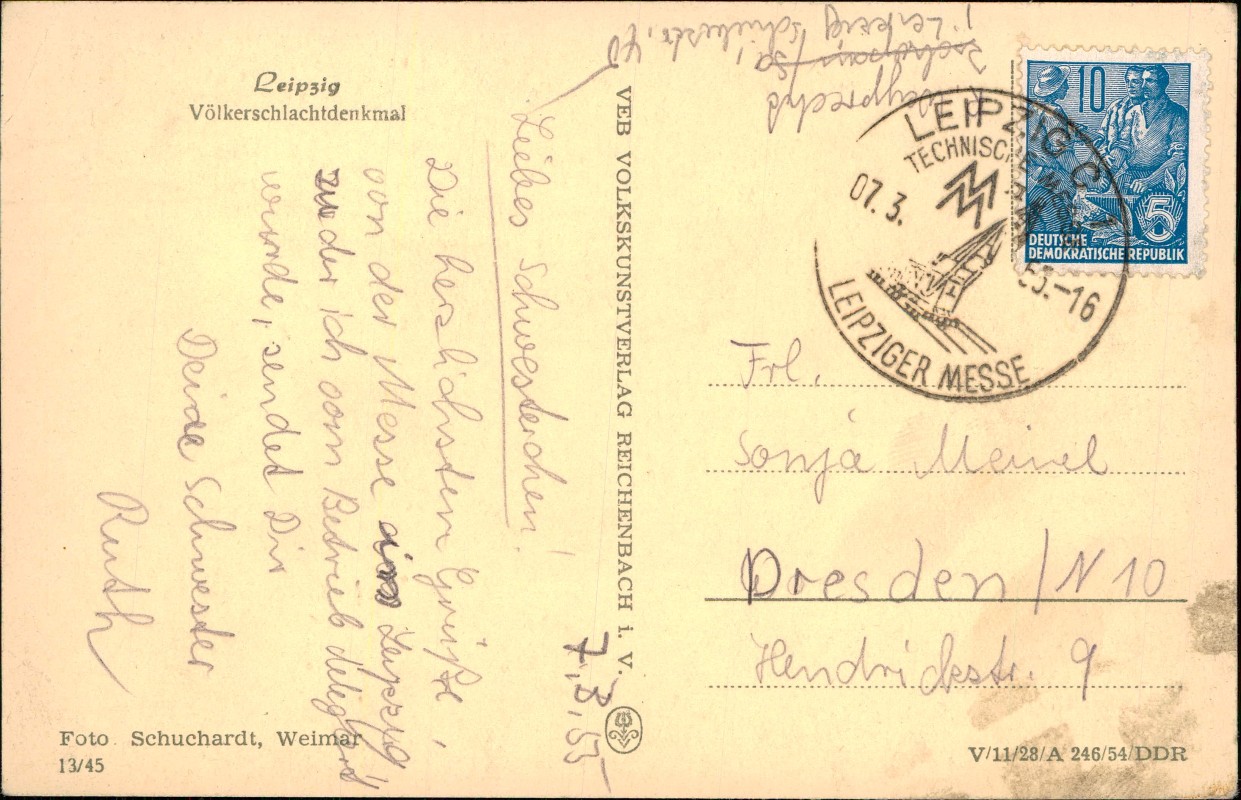 Leipzig
Völkerschlachtdenkmal
7.3.55
Liebes Schwesterchen!
Die herzlichsten Grüße,
von der Messe aus Leipzig
zu der ich vom Betrieb delegiert
wurde, sendet Dir
Deine Schwester
Ruth
Foto Schuchardt, Weimar
13/45
VEB VOLKSKUNSTVERLAG REICHENBACH i. V.
Leipzig
10
5
DEUTSCHE
DEMOKRATISCHE REPUBLIK
LEIPZIG C 1
TECHNISCHE
MM
07.3.
55.-16
LEIPZIGER MESSE
Frl.
Sonja Meinel
Dresden / N 10
Hendrichstr. 9
V/11/28/A 246/54/DDR